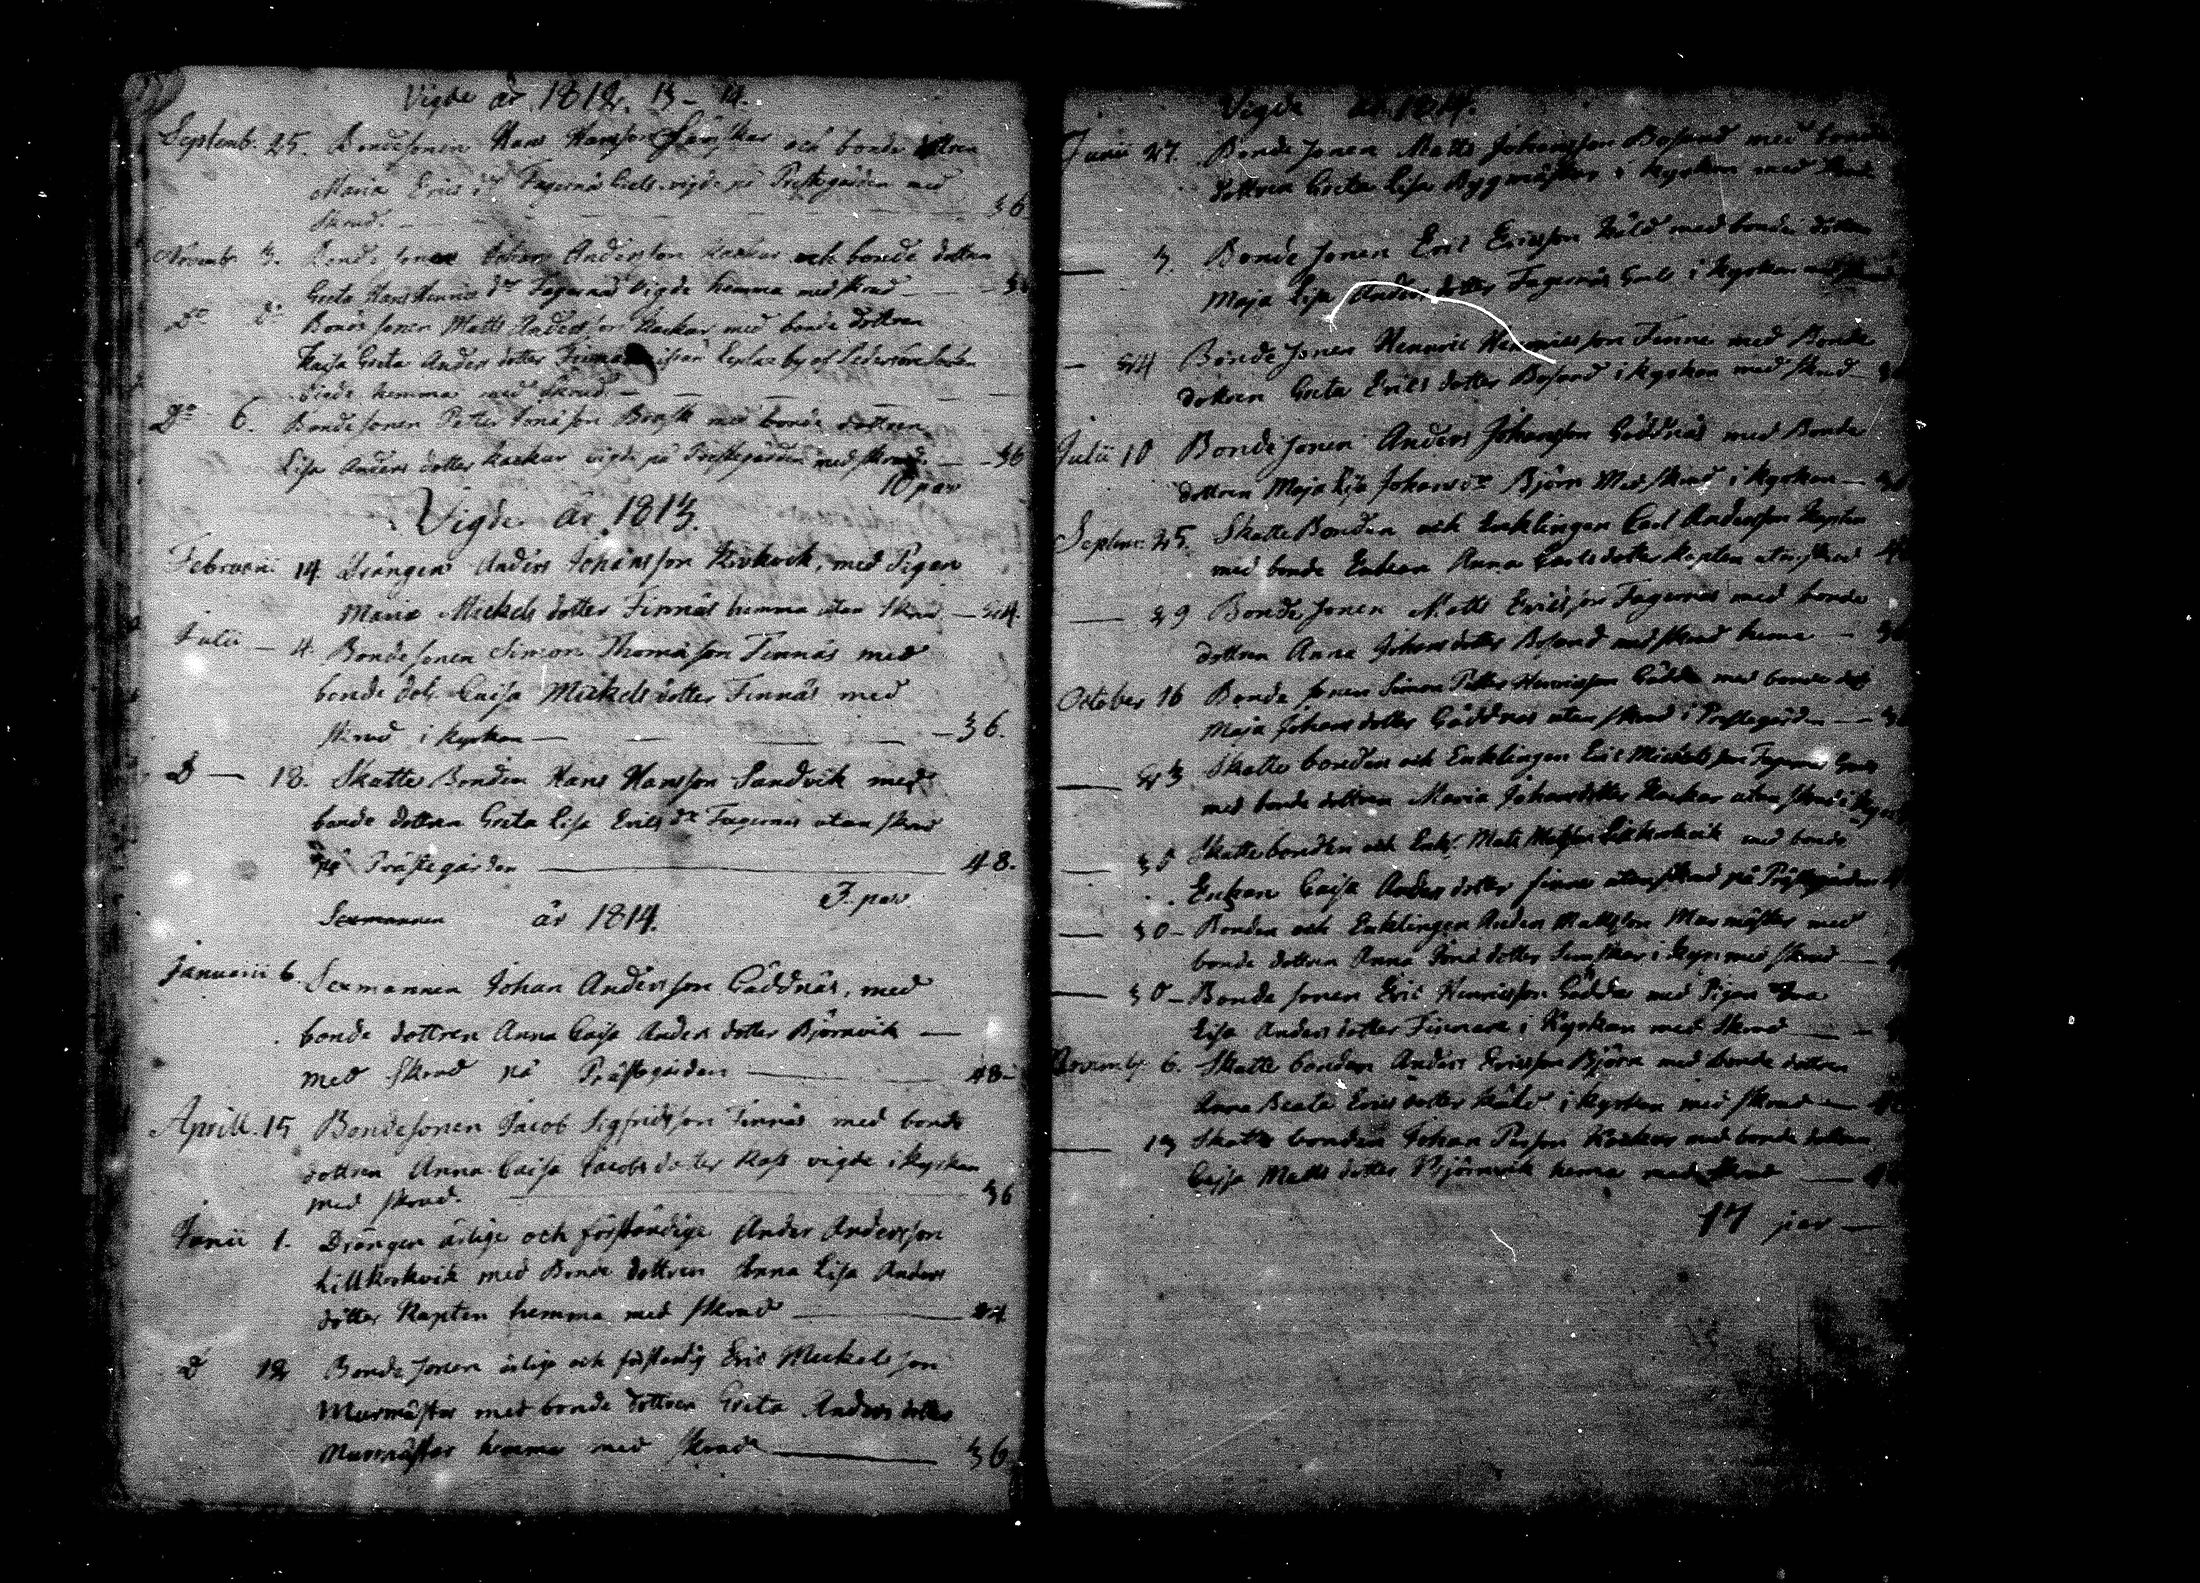 Vigde år 1812. 13 - 14.
Septemb. 25. Bondesonen Hans Hansson och bonde dottren
Maria Erics dr Fagernäs vigde på Prestegården med
skrud. 36.
Novemb. 3. Bonde sonen Johan Andersson Kackur och bonde dottren
Greta Hans dr Fagernäs vigde hemma med skrud
Do Do Bonde sonen Matts Andersson Kackur med bonde dottren
Kaisa Greta Anders dotter från Esplax by af
hemma med skrud
Do 6. Bonde sonen Petter Jonasson med bonde dottren
Lisa Anders dotter Kackur vigde på Prestegården med skrud. 36
10 par
Vigde år 1813.
Februarii 14. Drängen Anders Johansson Korkvik, med Pigan
Maria Mickels dotter Finnäs hemma utan skrud 24.
Julii 4. Bondesonen Simon Thomasson Finnäs med
bonde dot. Caisa Mickels dotter Finnäs med
skrud i kyrkan 36.
D 18. Skatte Bonden Hans Hansson Sandvik med
bonde dottren Greta Lisa Erics dr Fagernäs utan skrud
på Prästegården 48.
3. par
Sexmannen år 1814.
Januarii 6. Sexmannen Johan Andersson Gäddnäs, med
bonde dottren Anna Caisa Anders dotter Björnvik
med skrud på Prästegården 48
Aprill. 15 Bondesonen Jacob Sigfridsson Finnäs med bonde
dottren Anna Caisa Jacobs dotter Kass vigde i kyrkan
med skrud. 36
Junii 1. Drängen ärlige och förståndige Anders Andersson
Lillkorkvik med Bonde dottren Anna Lisa Anders
dotter Kapten hemma med skrud 24
D 12 Bonde sonen ärlige och förståndig Eric Mickelsson
Murmästar med bonde dottren Greta Anders dotter
Murmästar hemma med skrud 36.
Vigde år 1814.
Junii 27. Bonde sonen Matts Johansson Bosund med bonde
dottren Greta Lisa Byggmästar i kyrkan med skrud
3. Bonde sonen Eric Ericsson med bonde dottren
Maja Lisa Anders dotter Fagernäs i kyrkan
24 Bonde sonen Henric Henricsson Finne med Bonde
dottren Greta Erics dotter Bosund i kyrkan med skrud
Julii 10 Bonde sonen Anders Johansson Gäddnäs med Bonde
dottren Maja Lisa Johans dr Björn med skrud i kyrkan
Septemr. 25. Skatte Bonden och Enklingen Carl Andersson Kapten
med bonde Enkan Anna Carls dotter Kapten utan skrud
29 Bonde sonen Matts Ericsson Fagernäs med bonde
dottren Anna Johans dotter Bosund med skrud hema
October 16 Bonde sonen Simon Petter Henricsson Gädda med bonde dot
Maja Johans dotter Gäddnäs utan skrud i Prestegården
23 Skatte bonden och Enklingen Eric Mickelsson Fagernäs
med bonde dottren Maria Johans dotter Kackur utan skrud i
30 Skatte bonden och Enkl. Mats Matsson Lillkorkvik med bonde
Enkan Caisa Anders dotter Finnäs utan skrud på Prästegården
30 - Bonden och Enklingen Anders Mattsson Murmästar med
bonde dottren Anna dotter i kyrk med skrud
30 - Bonde sonen Eric Henricsson Gäddas med Pigan
Lisa Anders dotter i Kyrkan med skrud
Novemb. 6. Skatte bonden Anders Ericsson Björn med bonde dottren
Anna Beata Erics dotter i kyrkan med skrud
13 Skatte bonden Johan Kackur med bonde dottren
Cajsa Matts dotter Björnvik hema med skrud
17 par